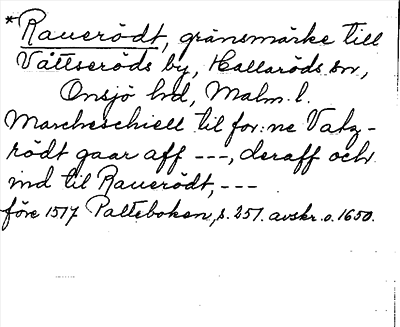 *Rauerödt, gränsmärke till
Våttseröds by, Hallaröds sn,
Onsjö hd, Malm. l.
Marcheschiell til for:ne Vatz-
rödt gaar aff ---, deraff och
ind til Rauerödt, ---
före 1517 Palteboken, s. 251. avskr. o. 1650.